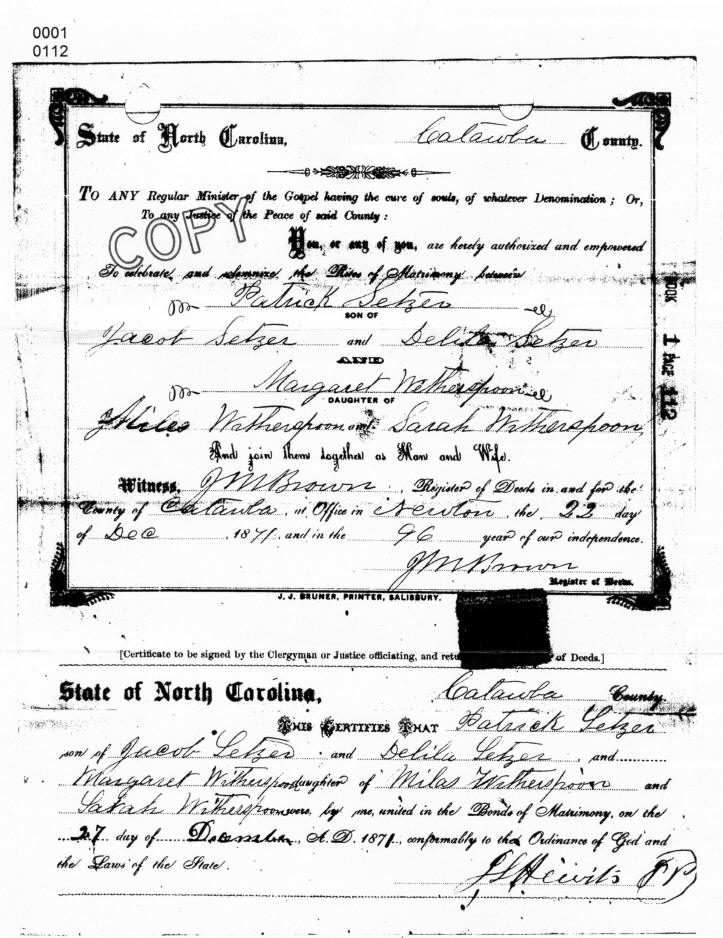 0001
0112
State of North Carolina, Catawba County.
TO ANY Regular Minister of the Gospel having the cure of souls, of whatever Denomination; Or,
To any Justice of the Peace of said County:
COPY
You, or any of you, are hereby authorized and empowered
To celebrate and solemnize the Rites of Matrimony between
Patrick Setzer
SON OF
Jacob Setzer and Delila Setzer
AND
Margaret Witherspoon
DAUGHTER OF
Miles Witherspoon and Sarah Witherspoon,
And join them together as Man and Wife.
Witness, J M Brown, Register of Deeds in and for the
County of Catawba, at Office in Newton, the 22 day
of Dec 1871, and in the 96 year of our independence.
J M Brown
Register of Deeds.
BOOK 1 PAGE 112
J. J. BRUNER, PRINTER, SALISBURY.
[Certificate to be signed by the Clergyman or Justice officiating, and of Deeds.]
State of North Carolina, Catawba County
THIS CERTIFIES THAT Patrick Setzer
son of Jacob Setzer and Delila Setzer, and
Margaret Witherspoon daughter of Milas Witherspoon and
Sarah Witherspoon were, by me, united in the Bonds of Matrimony, on the
27 day of December, A. D. 1871, conformably to the Ordinance of God and
the Laws of the State.
Hewits J P